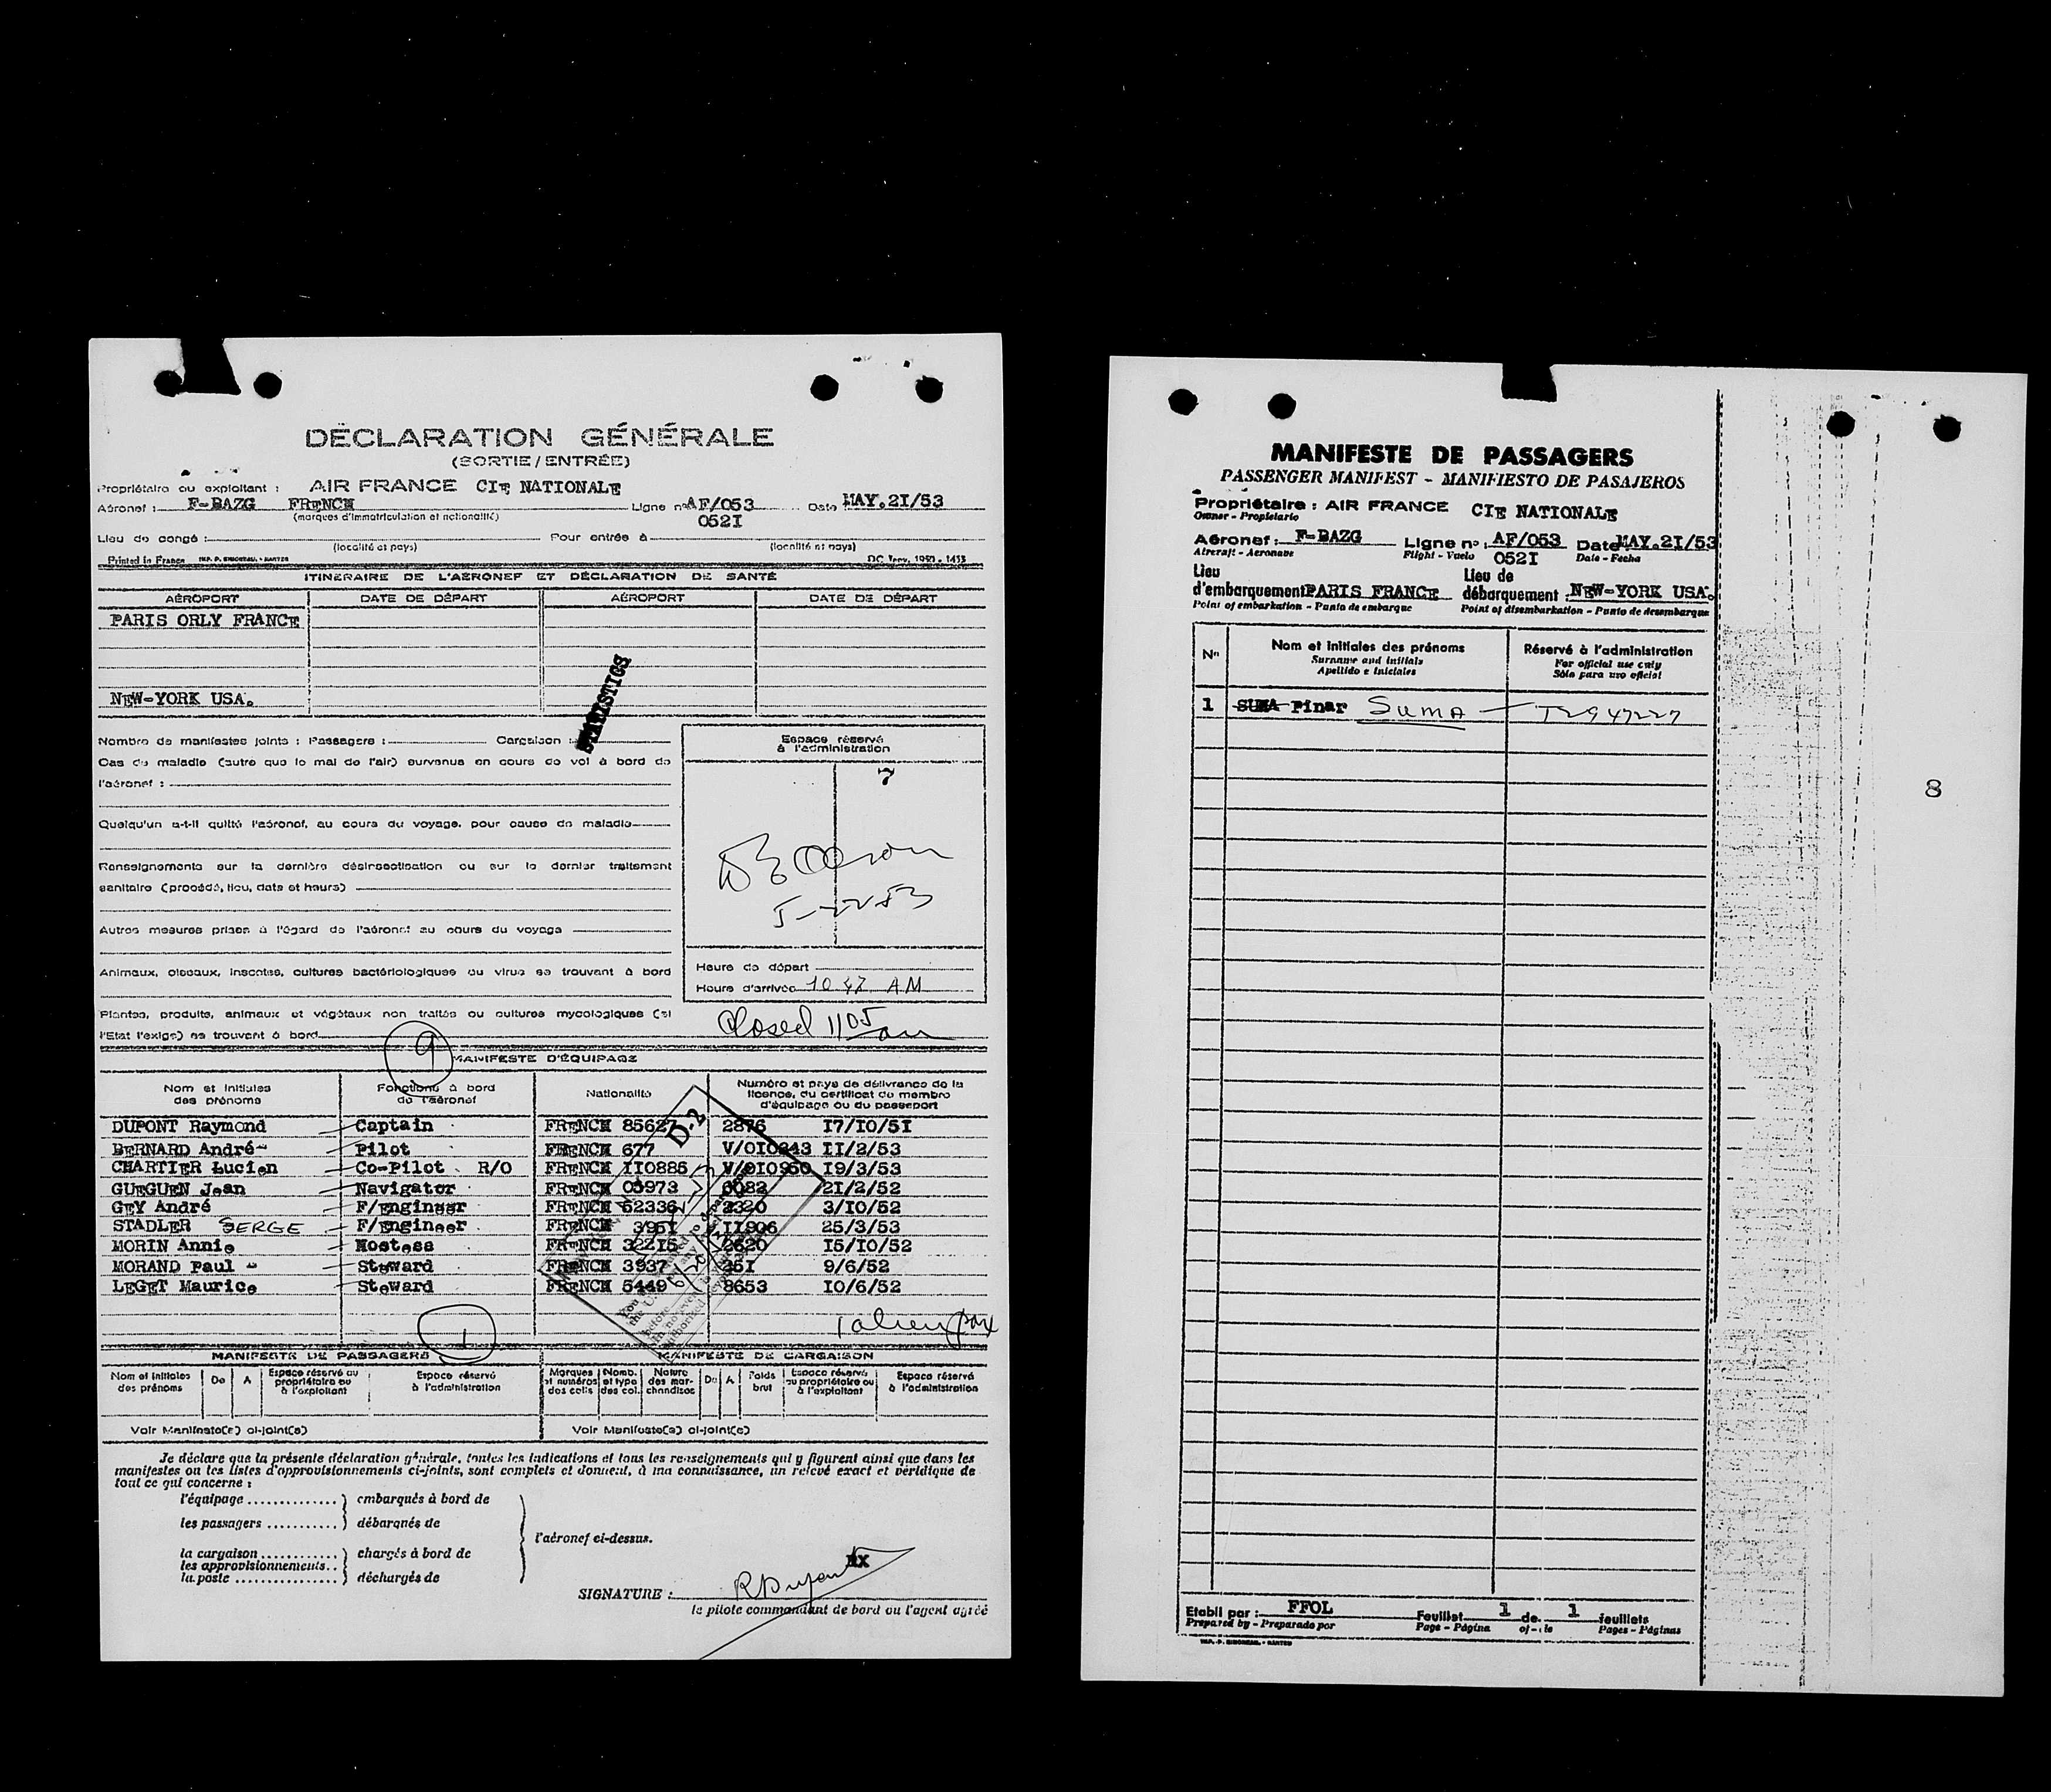 DÉCLARATION GÉNÉRALE
(SORTIE / ENTRÉE)
Propriétaire ou exploitant : AIR FRANCE CIE NATIONALE
Aéronef : F-BAZG FRENCH Ligne n° AF/053 Date MAY.2I/53
(marques d'immatriculation et nationalité) 052I
Lieu de congé : Pour entrée à
(localité et pays) (localité et pays)
Printed in France
ITINÉRAIRE DE L'AÉRONEF ET DÉCLARATION DE SANTÉ
AÉROPORT DATE DE DÉPART AÉROPORT DATE DE DÉPART
PARIS ORLY FRANCE
NEW-YORK USA.
STATISTICS
Nombre de manifestes joints : Passagers : Cargaison :
Cas de maladie (autre que le mal de l'air) survenus en cours de vol à bord de
l'aéronef :
Quelqu'un a-t-il quitté l'aéronef, au cours du voyage, pour cause de maladie
Renseignements sur la dernière désinsectisation ou sur le dernier traitement
sanitaire (procédé, lieu, date et heure)
Autres mesures prises à l'égard de l'aéronef au cours du voyage
Animaux, oiseaux, insectes, cultures bactériologiques ou virus se trouvant à bord
Plantes, produits, animaux et végétaux non traités ou cultures mycologiques (si
l'Etat l'exige) se trouvent à bord
Espace réservé
à l'administration
7
Heure de départ
Heure d'arrivée 10 47 AM
Closed 1105 am
9
MANIFESTE D'ÉQUIPAGE
Nom et initiales des prénoms Fonctions à bord de l'aéronef Nationalité Numéro et pays de délivrance de la licence, du certificat de membre d'équipage ou du passeport
DUPONT Raymond Captain FRENCH 85627 2876 I7/IO/5I
BERNARD André Pilot FRENCH 677 V/OIO243 II/2/53
CHARTIER Lucien Co-Pilot R/O FRENCH IIO885 V/OIO950 I9/3/53
GUEGUEN Jean Navigator FRENCH 05973 0082 2I/2/52
GEY André F/Engineer FRENCH 52336 2320 3/IO/52
STADLER SERGE F/Engineer FRENCH 395I II906 25/3/53
MORIN Annie Hostess FRENCH 32215 2620 I5/IO/52
MORAND Paul Steward FRENCH 3937 25I 9/6/52
LEGET Maurice Steward FRENCH 5449 8653 IO/6/52
D-2
1 alien pax
1
MANIFESTE DE PASSAGERS MANIFESTE DE CARGAISON
Nom et initiales des prénoms De A Espace réservé au propriétaire ou à l'exploitant Espace réservé à l'administration Marques et numéros des colis Nomb. et type des col. Nature des marchandises De A Poids brut Espace réservé au propriétaire ou à l'exploitant Espace réservé à l'administration
Voir Manifeste(s) ci-joint(s) Voir Manifeste(s) ci-joint(s)
Je déclare que la présente déclaration générale, toutes les indications et tous les renseignements qui y figurent ainsi que dans les
manifestes ou les listes d'approvisionnements ci-joints, sont complets et donnent, à ma connaissance, un relevé exact et véridique de
tout ce qui concerne :
l'équipage .............. embarqués à bord de
les passagers ........... débarqués de
l'aéronef ci-dessus.
la cargaison ............ chargés à bord de
les approvisionnements..
la poste ................ déchargés de
SIGNATURE : RDupont
le pilote commandant de bord ou l'agent agréé
MANIFESTE DE PASSAGERS
PASSENGER MANIFEST - MANIFIESTO DE PASAJEROS
Propriétaire : AIR FRANCE CIE NATIONALE
Owner - Propietario
Aéronef : F-BAZG Ligne n° : AF/053 Date MAY.2I/53
Aircraft - Aeronave Flight - Vuelo 052I Date - Fecha
Lieu d'embarquement PARIS FRANCE Lieu de débarquement : NEW-YORK USA.
Point of embarkation - Punto de embarque Point of disembarkation - Punto de desembarque
N° Nom et initiales des prénoms Réservé à l'administration
Surname and initials For official use only
Apellido e iniciales Sólo para uso oficial
1 SUMA Pinar Suma T2947227
8
Etabli par : FFOL Feuillet 1 de 1 feuillets
Prepared by - Preparado por Page - Página of - de Pages - Páginas